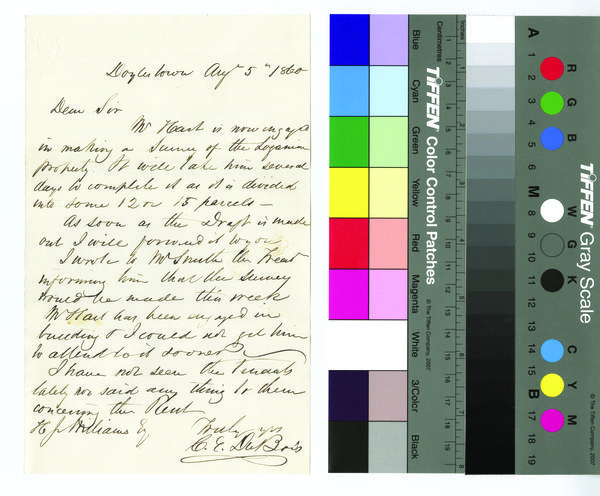 Doylestown Augt 5th 1860
Dear Sir
Mr Hart is now engaged
in making a Survey of the Loganian
property. It will take him several
days to complete it as it is divided
into some 12 or 15 parcels –
As soon as the Draft is made
out I will forward it to you
I wrote to Mr Smith the Treas
informing him that the survey
would be made this week
Mr Hart has been engaged in
building & I could not get him
to attend to it sooner
I have not seen the Tenants
lately nor said any thing to them
concerning the Rent
H J Williams Esq
Truly yrs
C. E. DuBois
Blue
Cyan
Green
Yellow
Red
Magenta
White
3/Color
Black
Centimetres
Inches
TIFFEN Color Control Patches
© The Tiffen Company, 2007
A
1
2
3
4
5
6
M
8
9
10
11
12
13
14
15
B
17
18
19
R
G
B
W
G
K
C
Y
M
TIFFEN Gray Scale
© The Tiffen Company, 2007